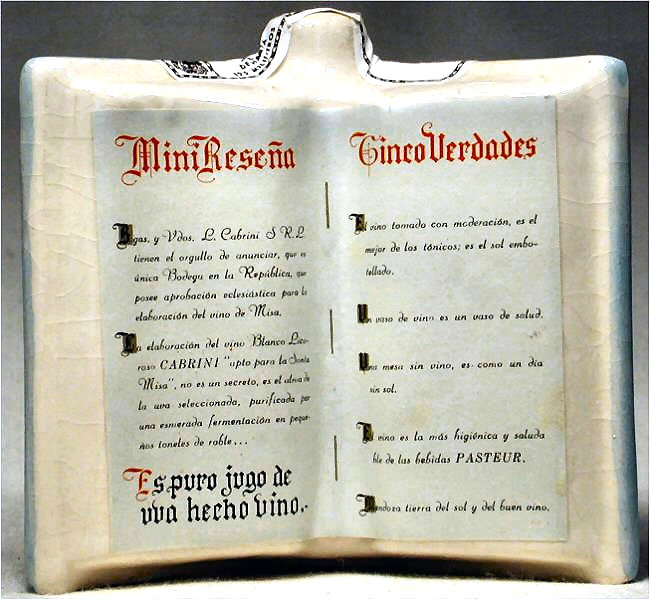 DEL
LOS MILITROS
Mini Reseña
Bgas. y Vdos. L. Cabrini S R.L
tienen el orgullo de anunciar, que es
única Bodega en la República, que
posee aprobación eclesiástica para la
elaboración del vino de Misa.
La elaboración del vino Blanco Lico-
roso CABRINI "apto para la Santa
Misa", no es un secreto, es el alma de
la uva seleccionada, purificada por
una esmerada fermentación en peque-
ños toneles de roble...
Es puro jugo de
uva hecho vino.-
Cinco Verdades
El vino tomado con moderación, es el
mejor de los tónicos; es el sol embo-
tellado.
Un vaso de vino es un vaso de salud.
Una mesa sin vino, es como un día
sin sol.
El vino es la más higiénica y saluda
ble de las bebidas PASTEUR.
Mendoza tierra del sol y del buen vino.